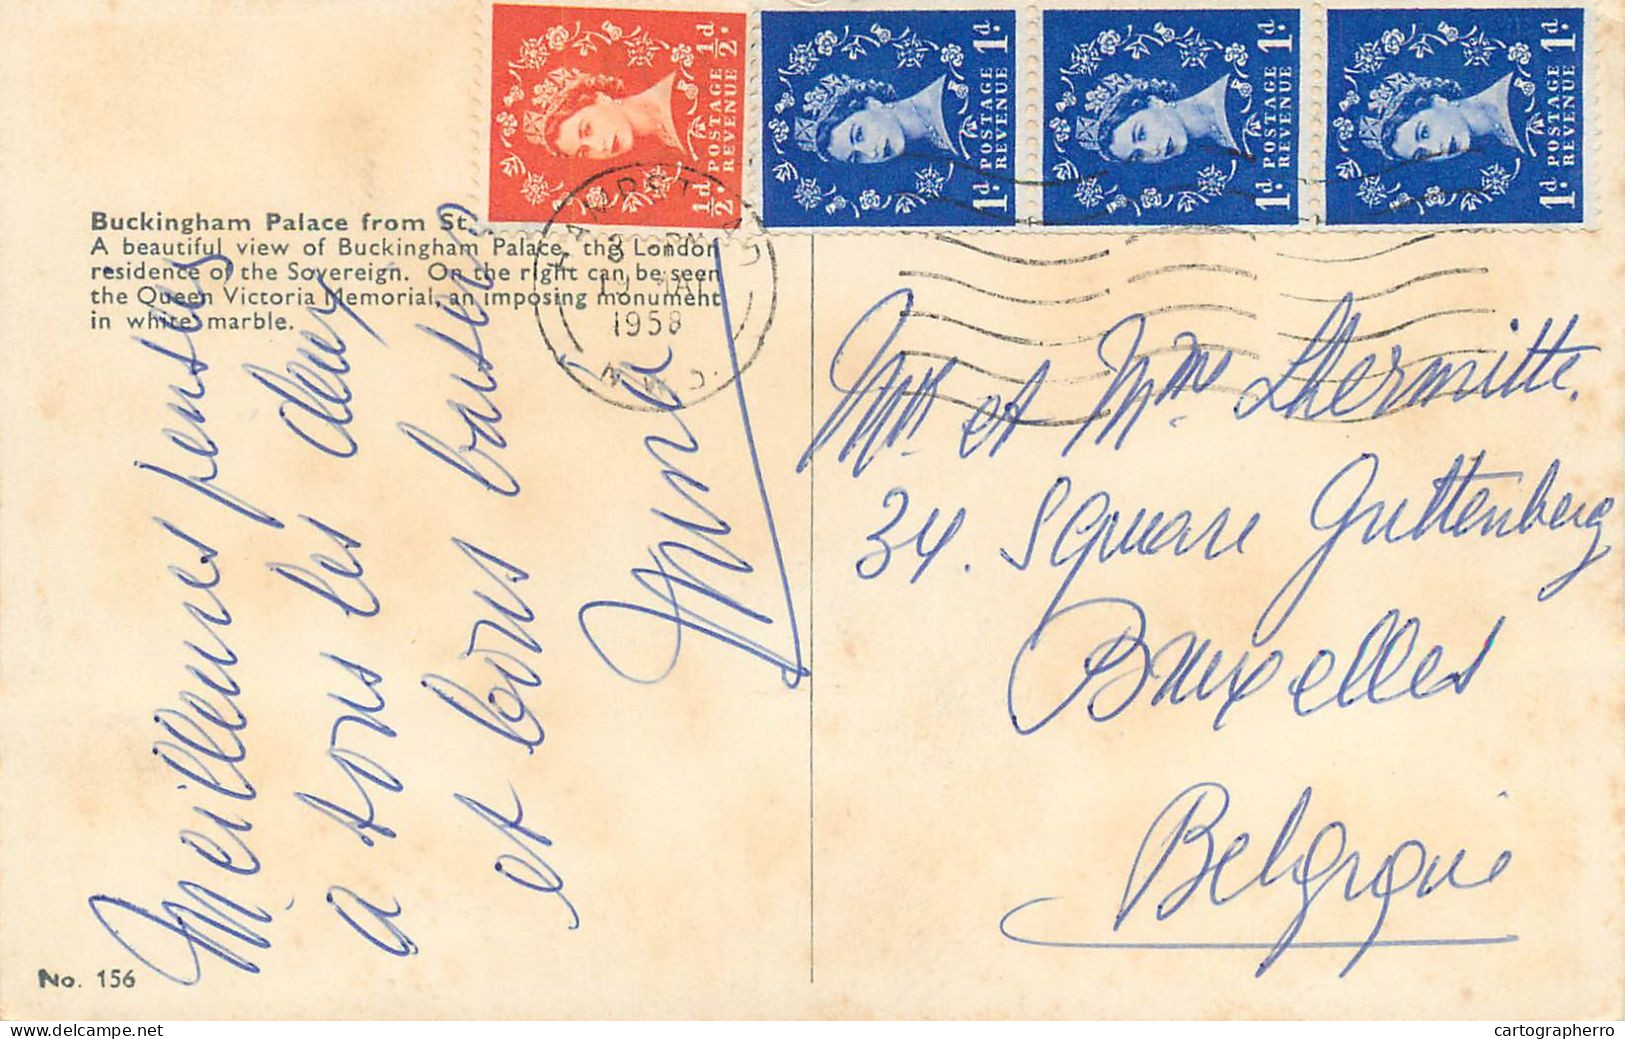 ½d POSTAGE REVENUE ½d
1d POSTAGE REVENUE 1d
1d POSTAGE REVENUE 1d
1d POSTAGE REVENUE 1d
HAMPSTEAD
19 MAY
1958
N.W.3.
Buckingham Palace from St.
A beautiful view of Buckingham Palace, the London
residence of the Sovereign. On the right can be seen
the Queen Victoria Memorial, an imposing monument
in white marble.
Meilleures pensées
a tous les deux
et bons baisers
Mr et Mme Lhermitte.
34. Square Guttenberg
Bruxelles
Belgique
No. 156
cartographerro